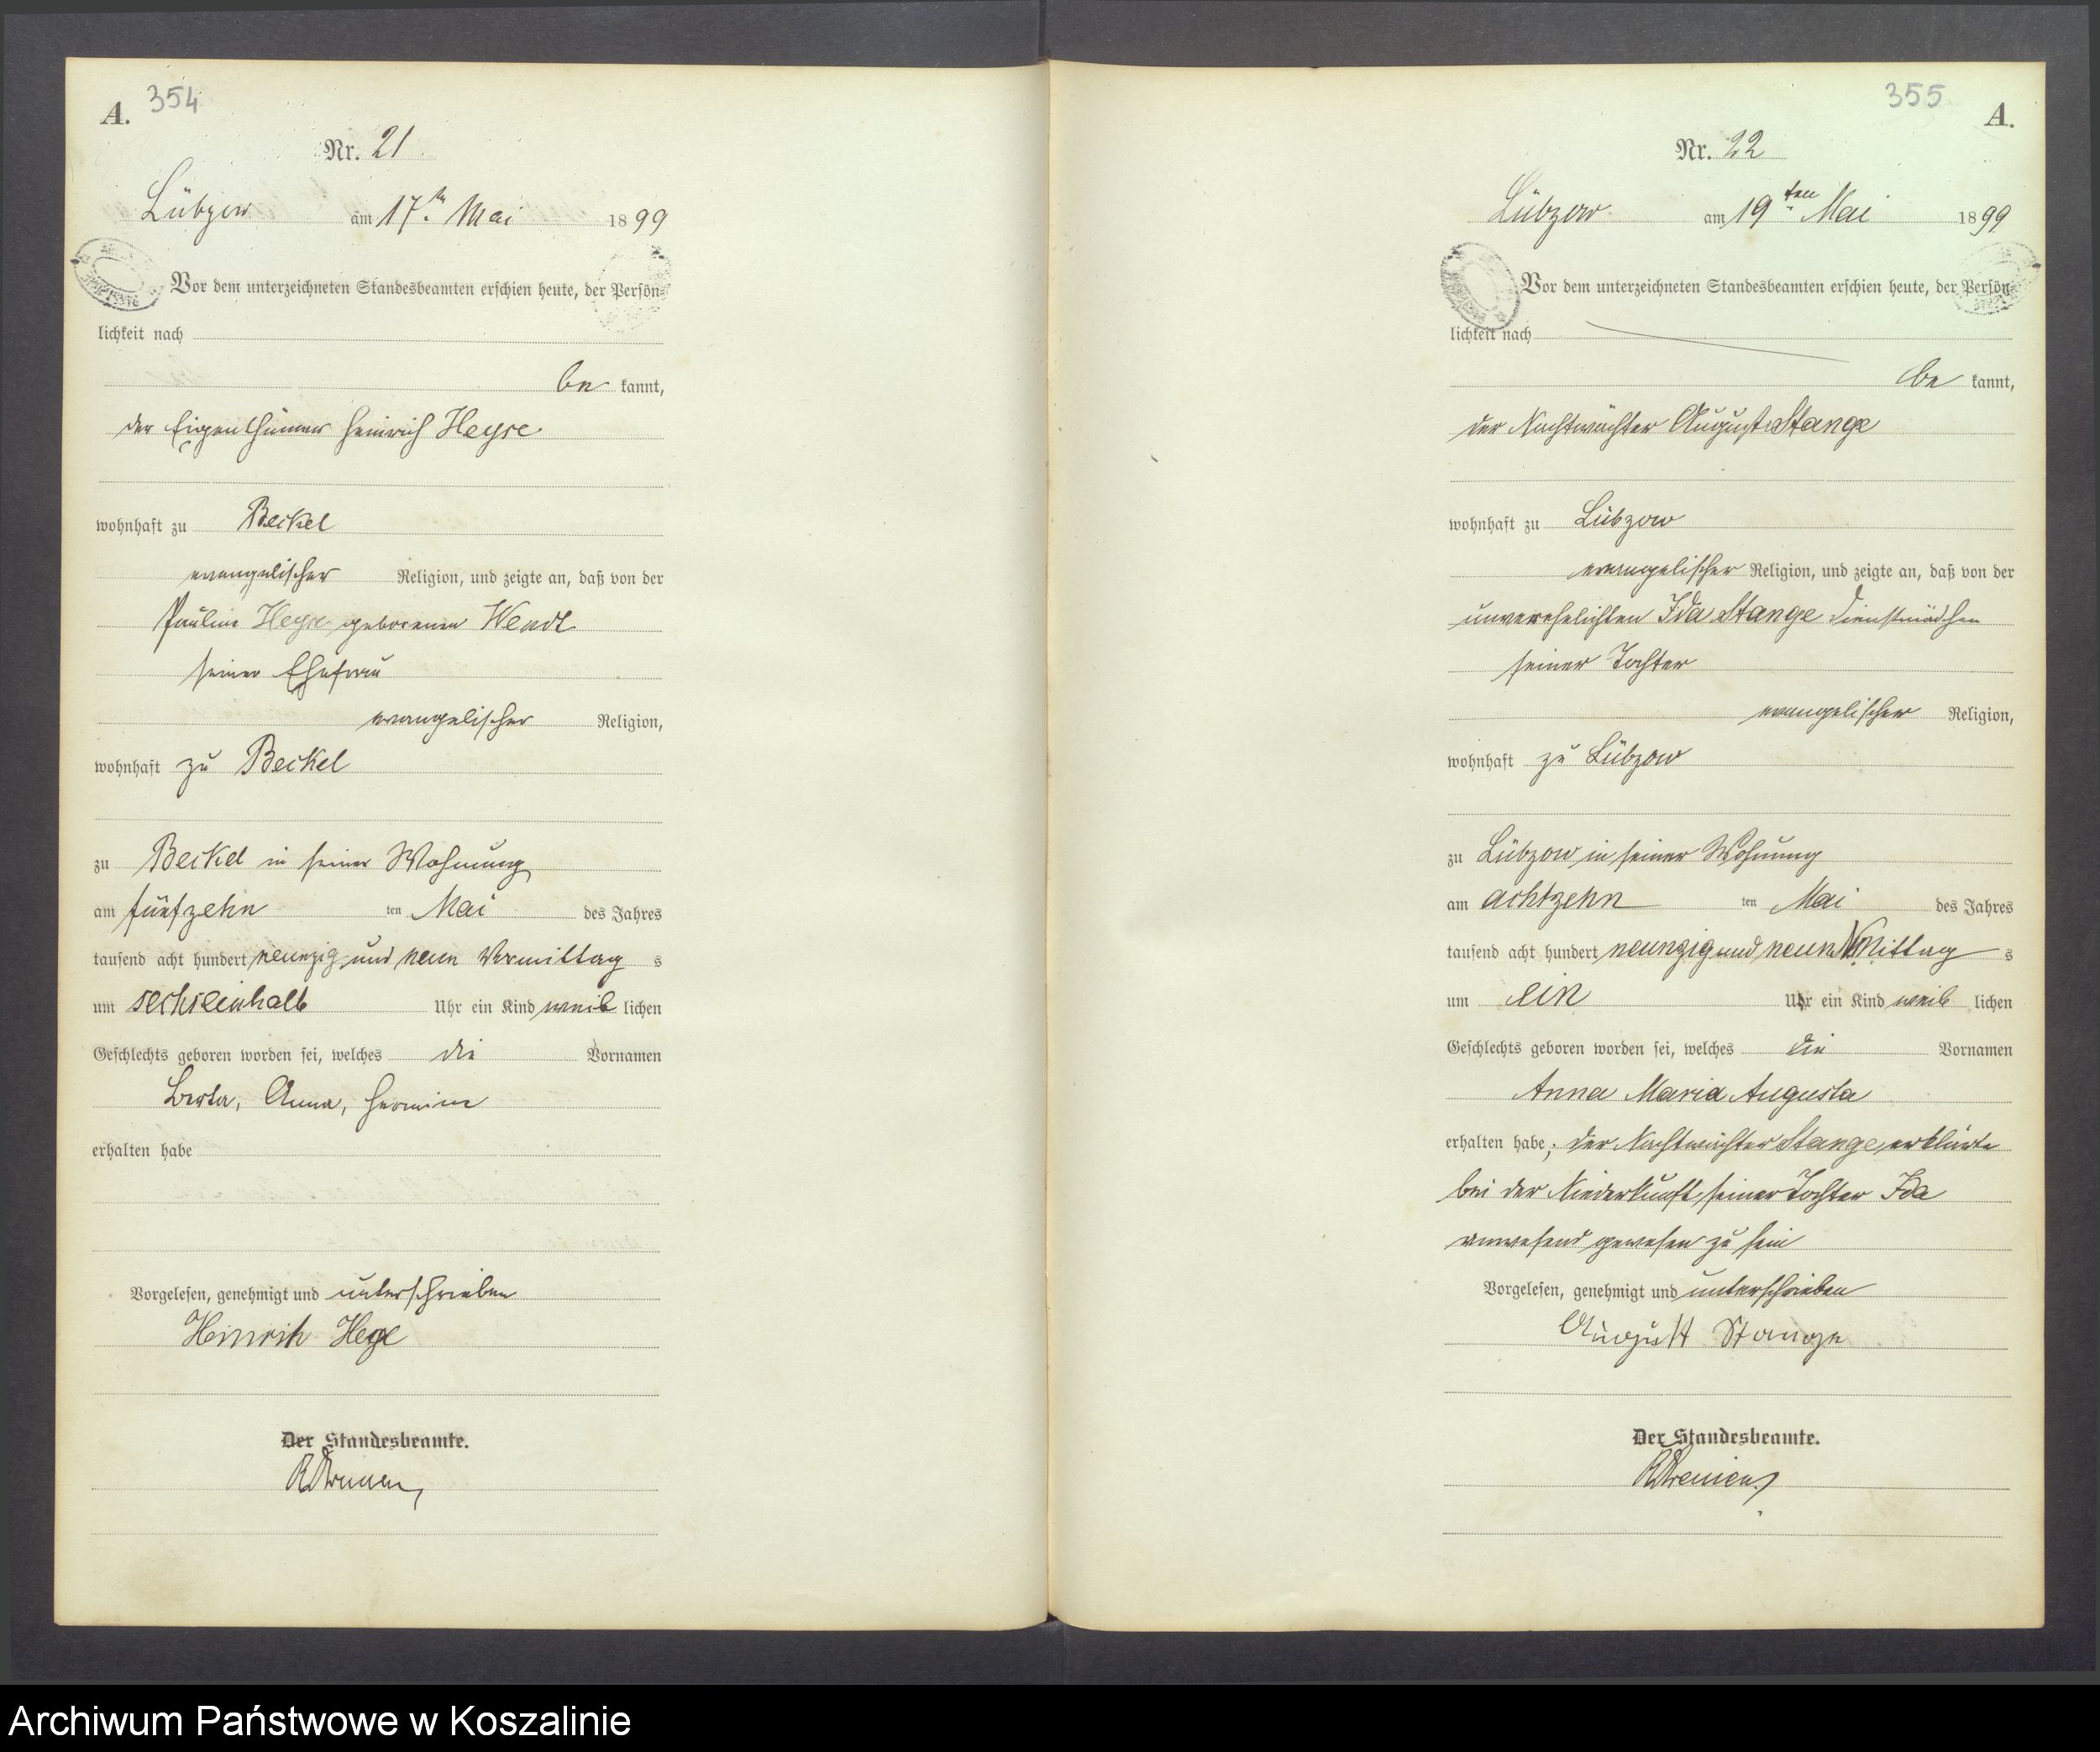 A. 354
Nr. 21
Lübzow am 17ten Mai 1899
Vor dem unterzeichneten Standesbeamten erschien heute, der Persön-
lichkeit nach
be kannt,
der Eigenthümer Heinrich Heyse
wohnhaft zu Beckel
evangelischer Religion, und zeigte an, daß von der
Pauline Heyse geborenen Wendt
seiner Ehefrau
evangelischer Religion,
wohnhaft zu Beckel
zu Beckel in seiner Wohnung
am fünfzehn ten Mai des Jahres
tausend acht hundert neunzig und neun Vormittag s
um sechseinhalb Uhr ein Kind weib lichen
Geschlechts geboren worden sei, welches die Vornamen
Berta, Anna, Hermine
erhalten habe
Vorgelesen, genehmigt und unterschrieben
Heinrih
Der Standesbeamte.
355 A.
Nr. 22
Lübzow am 19ten Mai 1899
Vor dem unterzeichneten Standesbeamten erschien heute, der Persön-
lichkeit nach
be kannt,
der Nachtwächter August Stange
wohnhaft zu Lübzow
evangelischer Religion, und zeigte an, daß von der
unverehelichten Ida Stange Dienstmädchen
seiner Tochter
evangelischer Religion,
wohnhaft zu Lübzow
zu Lübzow in seiner Wohnung
am achtzehn ten Mai des Jahres
tausend acht hundert neunzig und neun Nmittag s
um ein Uhr ein Kind weib lichen
Geschlechts geboren worden sei, welches die Vornamen
Anna Maria Augusta
erhalten habe; der Nachtwächter Stange erklärte
bei der Niederkunft seiner Tochter Ida
anwesend gewesen zu sein
Vorgelesen, genehmigt und unterschrieben
August Stange
Der Standesbeamte.
Archiwum Państwowe w Koszalinie